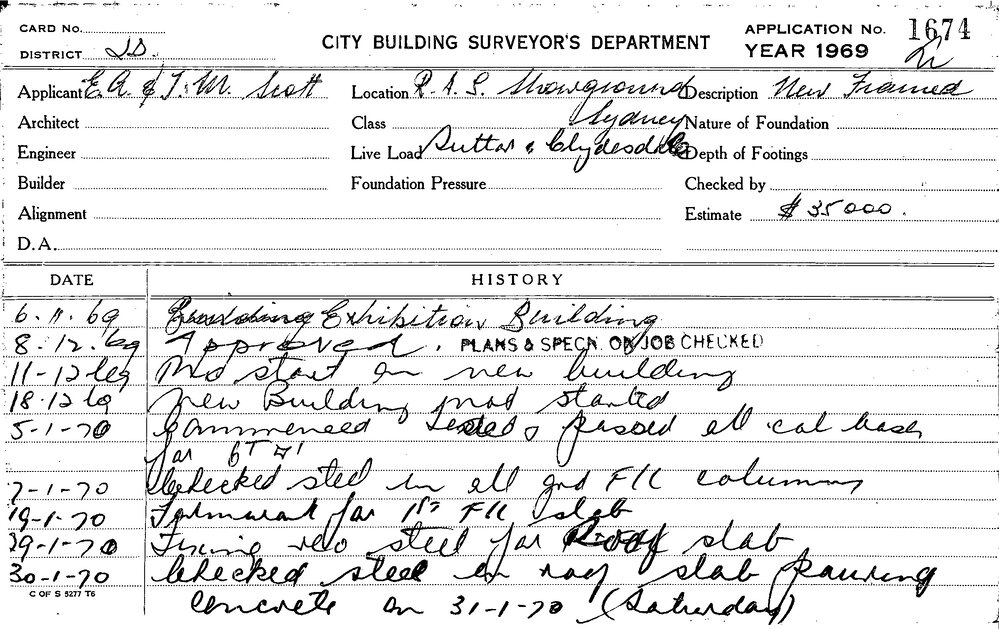 CARD No.
DISTRICT
CITY BUILDING SURVEYOR'S DEPARTMENT
APPLICATION No. 1674
YEAR 1969
Applicant E. A. & J. M. Scott
Location R. A. S. Showground
Description New Framed
Architect
Class Sydney
Nature of Foundation
Engineer
Live Load Suttor & Clydesdale
Depth of Footings
Builder
Foundation Pressure
Checked by
Alignment
Estimate $ 35 000.
D.A.
DATE
HISTORY
6. 11. 69 Exhibition Building
8. 12. 69 Approved. PLANS & SPECN. ON JOB CHECKED
11-12 69 No start on new building
18-12 69 New Building not started
5-1-70 Commenced passed all col bases
for
7-1-70 Checked steel in all gnd F/L columns
19-1-70 Formwork for 1st F/L slab
29-1-70 Fixing reo steel for Roof slab
30-1-70 Checked steel in roof slab pouring
C OF S 5277 T6
concrete on 31-1-70 (Saturday)